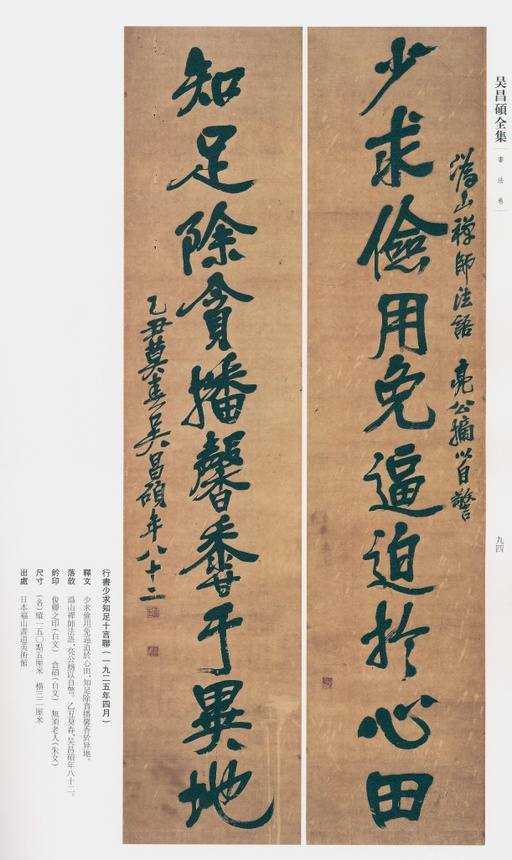 吴昌碩全集
書法卷
九四
溈山禅師法語 亮公摘以自警
少求儉用免逼迫於心田
知足除貪播馨香于異地
乙丑莫春吴昌碩年八十二
行書少求知足十言聯(一九二五年四月)
釋文 少求儉用免逼迫於心田,知足除貪播馨香於异地。
落款 溈山禪師法語,亮公摘以自警。乙丑莫春,吴昌碩年八十二。
鈐印 俊卿之印(白文) 倉碩(白文) 無須老人(朱文)
尺寸 (各)縱一五〇點五厘米 橫三二厘米
出處 日本福山書道美術館